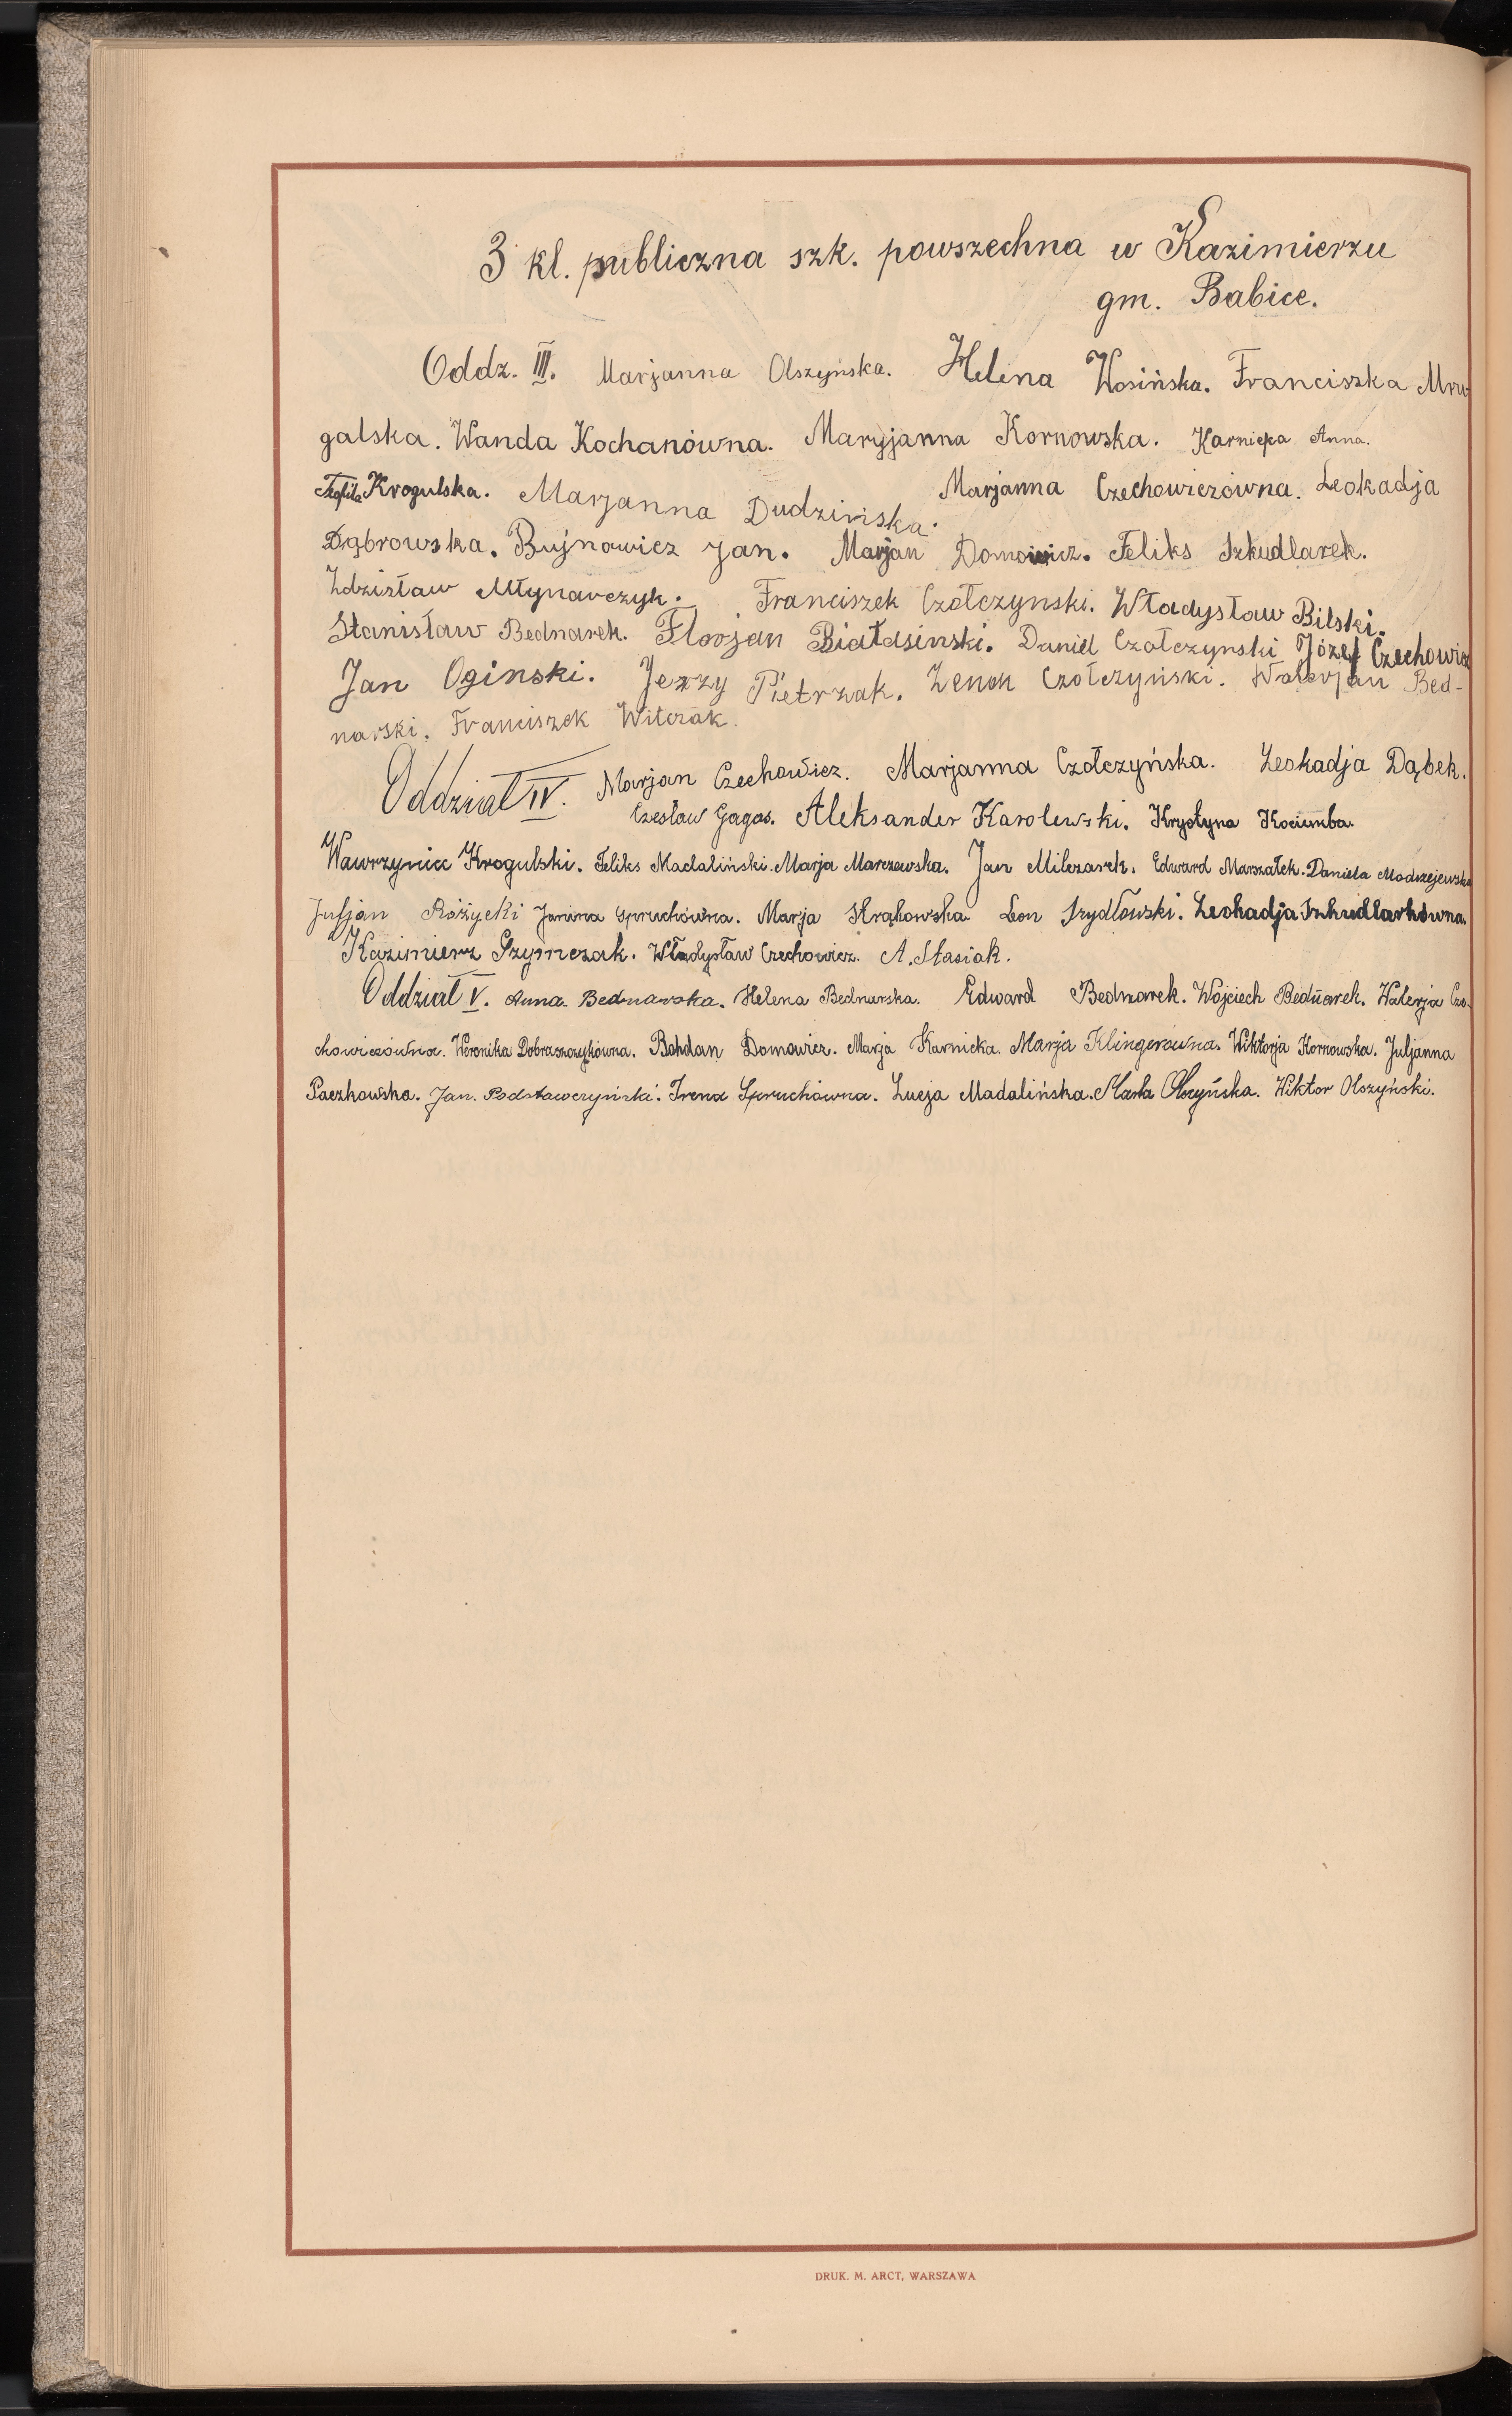 3 kl. publiczna szk. powszechna w Kazimierzu
gm. Babice.
Oddz. III. Marjanna Olszynska. Helena Wosińska. Franciszka Mru
galska. Wanda Kochanówna. Maryjanna Kornowska. Karnicka Anna.
Teofila Krogulska. Marjanna Dudzińska. Marjanna Czechowiczówna. Leokadja
Dąbrowska. Bujnowicz Jan. Marjan Domowicz. Feliks Szkudlarek.
Zdzisław Młynarczyk. Franciszek Czołczynski. Władysław Bilski.
Stanisław Bednarek. Florjan Białasinski. Daniel Czołczynski Józef Czechowicz
Jan Oginski. Jerzy Pietrzak. Zenon Czołczyński. Walerjan Bed-
narski. Franciszek Witczak.
Oddział IV. Marjan Czechowicz. Marjanna Czołczyńska. Leokadja Dąbek.
Czesław Gagas. Aleksander Karolewski. Krystyna Kociemba.
Wawrzyniec Krogulski. Feliks Madaliński. Marja Marczewska. Jan Milczarek. Edward Marszałek. Daniela Modrzejewska
Juljan Różycki Janina Spruchówna. Marja Strąkowska Leon Szydłowski. Leokadja Szkudlarkówna.
Kazimierz Szymczak. Władysław Czechowicz. A. Stasiak.
Oddział V. Anna Bednarska. Helena Bednarska. Edward Bednarek. Wojciech Bednarek. Walerja Cze-
chowiczówna. Weronika Dobraszczykówna. Bohdan Domowicz. Marja Karnicka. Marja Klingerówna. Wiktorja Kornowska. Juljanna
Paczkowska. Jan. Podstawczyński. Irena Spruchówna. Lucja Madalińska. Marta Olszyńska. Wiktor Olszyński.
DRUK. M. ARCT, WARSZAWA